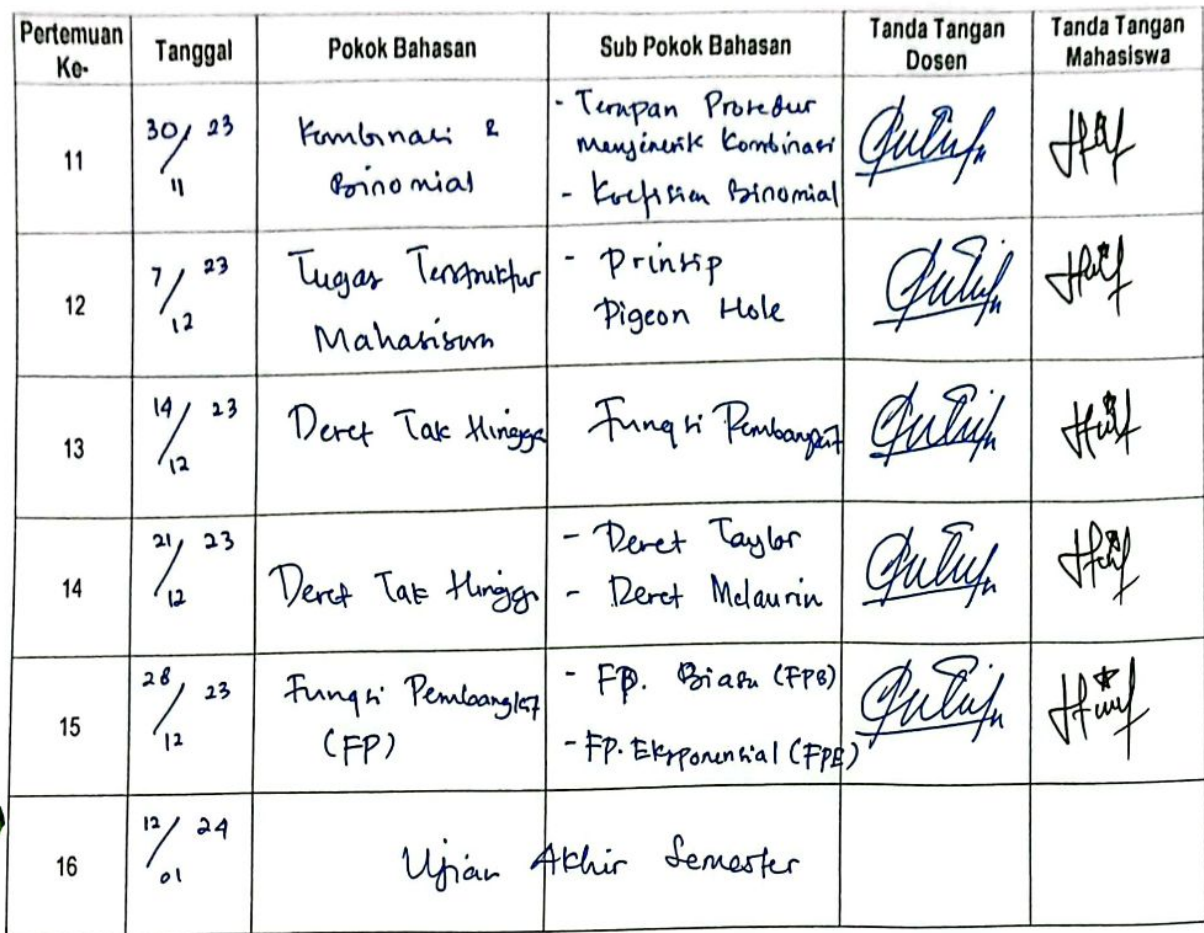 Pertemuan Ke-
Tanggal
Pokok Bahasan
Sub Pokok Bahasan
Tanda Tangan Dosen
Tanda Tangan Mahasiswa
11
30/11 23
Kombinasi &
Binomial
- Terapan Prosedur
Kombinasi
- Koefisien Binomial
12
7/12 23
Tugas Terstruktur
Mahasiswa
- Prinsip
Pigeon Hole
13
14/12 23
Deret Tak Hingga
Fungsi Pembangkit
14
21/12 23
Deret Tak Hingga
- Deret Taylor
- Deret Mclaurin
15
28/12 23
Fungsi Pembangkit
(FP)
- FP. Biasa (FPB)
- FP. Eksponensial (FPE)
16
12/01 24
Ujian Akhir Semester